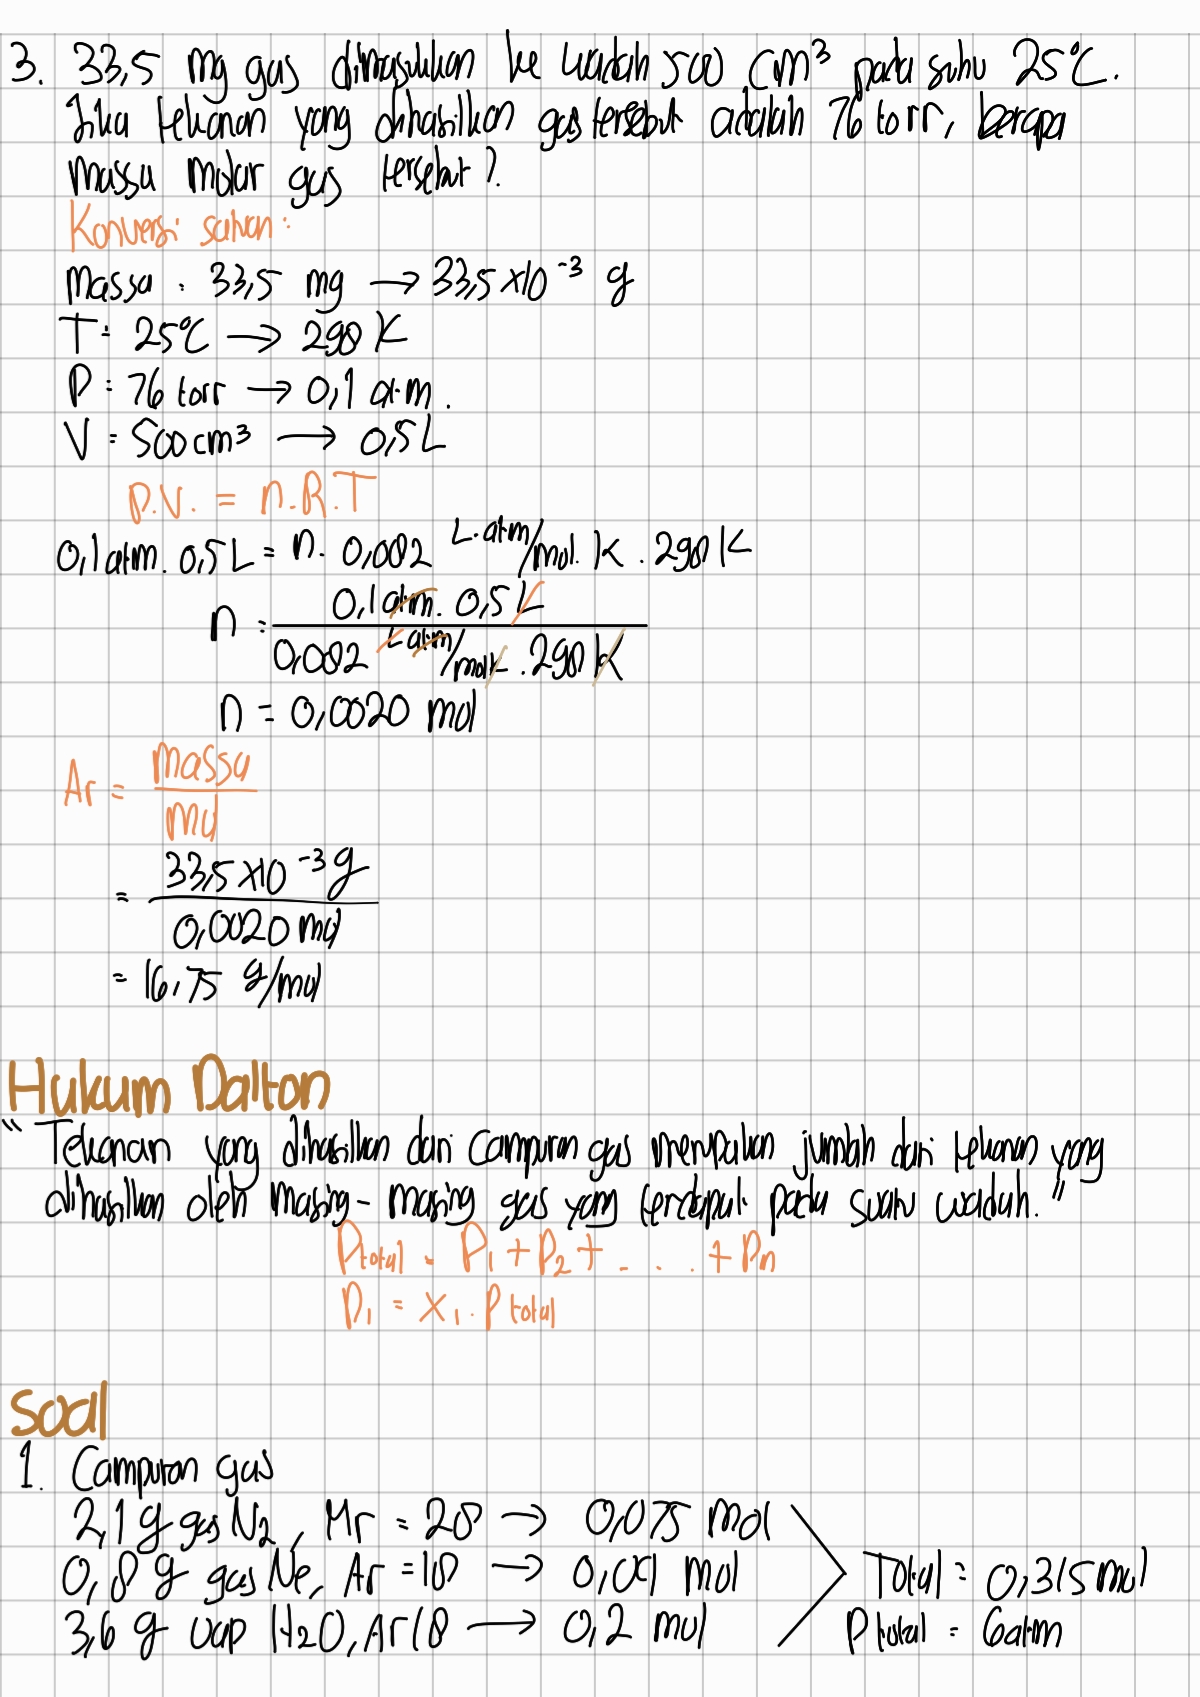 3. 33,5 mg gas dimasukkan ke wadah 500 cm³ pada suhu 25°C.
Jika tekanan yang dihasilkan gas tersebut adalah 76 torr, berapa
massa molar gas tersebut?
Konversi satuan:
Massa : 33,5 mg → 33,5 x10⁻³ g
T = 25°C → 298 K
P = 76 torr → 0,1 atm.
V = 500 cm³ → 0,5 L
P.V. = n.R.T
0,1 atm. 0,5 L = n. 0,082 L.atm/mol. K . 298 K
n = 0,1 atm. 0,5 L
0,082 L atm/mol K . 298 K
n = 0,0020 mol
Ar = massa
mol
= 33,5 x10⁻³ g
0,0020 mol
= 16,75 g/mol
Hukum Dalton
"Tekanan yang dihasilkan dari campuran gas merupakan jumlah dari tekanan yang
dihasilkan oleh masing-masing gas yang terdapat pada suatu wadah."
Ptotal = P₁ + P₂ + . . . . + Pn
P₁ = X₁. P total
Soal
1. Campuran gas
2,1 g gas N₂, Mr = 28 → 0,075 mol
0,8 g gas Ne, Ar = 18 → 0,01 mol Total = 0,315 mol
3,6 g uap H₂O, Ar 18 → 0,2 mol P total = 6 atm